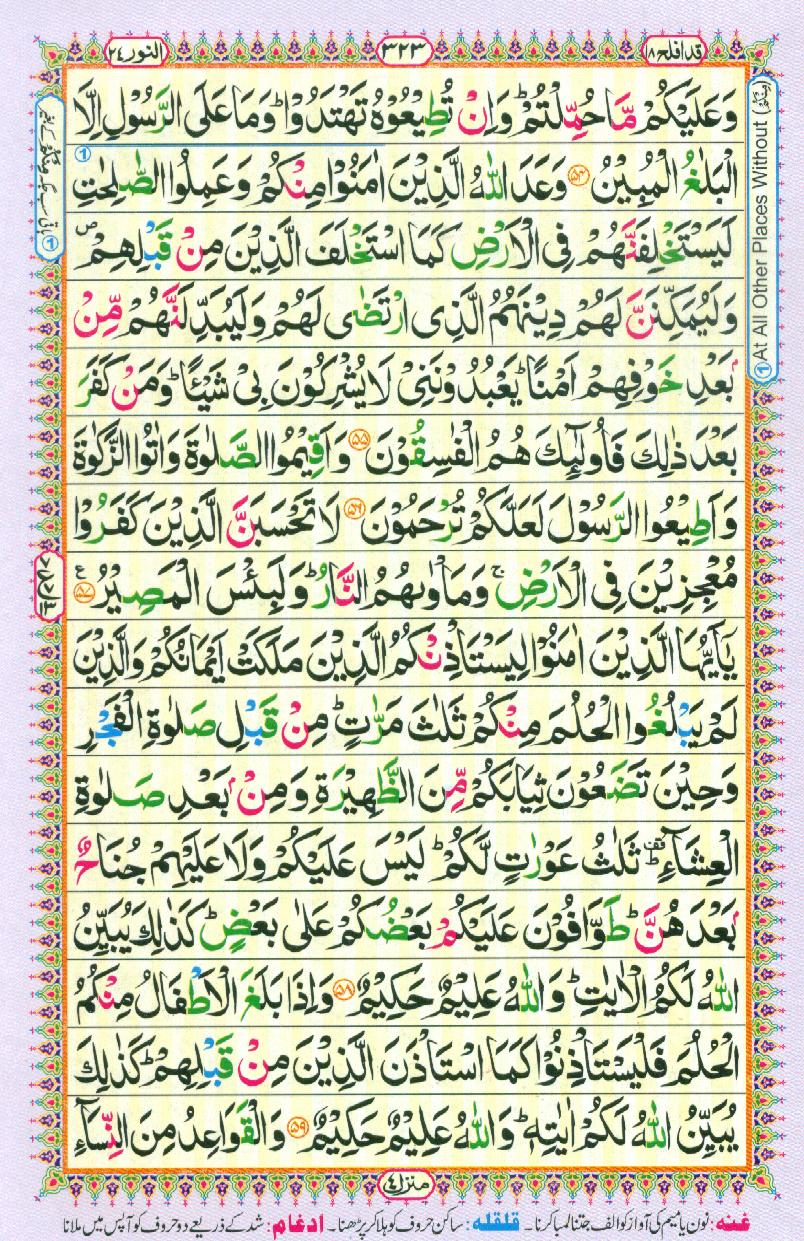 قد افلح ١٨
٣٢٣
النور ٢٤
وَعَلَيْكُمْ مَّا حُمِّلْتُمْ ؕ وَاِنْ تُطِيْعُوْهُ تَهْتَدُوْا ؕ وَمَا عَلَى الرَّسُوْلِ اِلَّا
الْبَلٰغُ الْمُبِيْنُ ﴿۵۴﴾ وَعَدَ اللّٰهُ الَّذِيْنَ اٰمَنُوْا مِنْكُمْ وَعَمِلُوا الصّٰلِحٰتِ
لَيَسْتَخْلِفَنَّهُمْ فِى الْاَرْضِ كَمَا اسْتَخْلَفَ الَّذِيْنَ مِنْ قَبْلِهِمْ ۪
وَلَيُمَكِّنَنَّ لَهُمْ دِيْنَهُمُ الَّذِى ارْتَضٰى لَهُمْ وَلَيُبَدِّلَنَّهُمْ مِّنْۢ
بَعْدِ خَوْفِهِمْ اَمْنًا ؕ يَعْبُدُوْنَنِىْ لَا يُشْرِكُوْنَ بِىْ شَيْـًٔا ؕ وَمَنْ كَفَرَ
بَعْدَ ذٰلِكَ فَاُولٰٓئِكَ هُمُ الْفٰسِقُوْنَ ﴿۵۵﴾ وَاَقِيْمُوا الصَّلٰوةَ وَاٰتُوا الزَّكٰوةَ
وَاَطِيْعُوا الرَّسُوْلَ لَعَلَّكُمْ تُرْحَمُوْنَ ﴿۵۶﴾ لَا تَحْسَبَنَّ الَّذِيْنَ كَفَرُوْا
مُعْجِزِيْنَ فِى الْاَرْضِ ۚ وَمَاْوٰىهُمُ النَّارُ ؕ وَلَبِئْسَ الْمَصِيْرُ ﴿۵۷﴾ ع
يٰۤاَيُّهَا الَّذِيْنَ اٰمَنُوْا لِيَسْتَاْذِنْكُمُ الَّذِيْنَ مَلَكَتْ اَيْمَانُكُمْ وَالَّذِيْنَ
لَمْ يَبْلُغُوا الْحُلُمَ مِنْكُمْ ثَلٰثَ مَرّٰتٍ ؕ مِنْ قَبْلِ صَلٰوةِ الْفَجْرِ
وَحِيْنَ تَضَعُوْنَ ثِيَابَكُمْ مِّنَ الظَّهِيْرَةِ وَمِنْۢ بَعْدِ صَلٰوةِ
الْعِشَآءِ ؕ ثَلٰثُ عَوْرٰتٍ لَّكُمْ ؕ لَيْسَ عَلَيْكُمْ وَلَا عَلَيْهِمْ جُنَاحٌۢ
بَعْدَهُنَّ ؕ طَوّٰفُوْنَ عَلَيْكُمْ بَعْضُكُمْ عَلٰى بَعْضٍ ؕ كَذٰلِكَ يُبَيِّنُ
اللّٰهُ لَكُمُ الْاٰيٰتِ ؕ وَاللّٰهُ عَلِيْمٌ حَكِيْمٌ ﴿۵۸﴾ وَاِذَا بَلَغَ الْاَطْفَالُ مِنْكُمُ
الْحُلُمَ فَلْيَسْتَاْذِنُوْا كَمَا اسْتَاْذَنَ الَّذِيْنَ مِنْ قَبْلِهِمْ ؕ كَذٰلِكَ
يُبَيِّنُ اللّٰهُ لَكُمْ اٰيٰتِهٖ ؕ وَاللّٰهُ عَلِيْمٌ حَكِيْمٌ ﴿۵۹﴾ وَالْقَوَاعِدُ مِنَ النِّسَآءِ
منزل ٤
غنه: نون یا میم کی آواز کو الف جتنا لمبا کرنا۔ قلقله: ساکن حروف کو ہلا کر پڑھنا۔ ادغام: شد کے ذریعے دو حروف کو آپس میں ملانا
① At All Other Places Without (مِنْكُمْ)